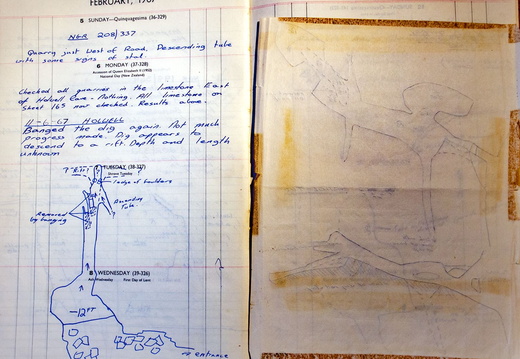 FEBRUARY, 1967
5 SUNDAY—Quinquagesima (36-329)
NGR 208/337
Quarry just West of Road. Descending tube
with some signs of stal.
6 MONDAY (37-328)
Accession of Queen Elizabeth II (1952)
National Day (New Zealand)
Checked all quarries in the limestone East
of Holwell Cave - Nothing. All limestone on
Sheet 165 now checked. Results above.
11-6-67 HOLWELL
Banged the dig again. Not much
progress made. Dig appears to
descend to a rift. Depth and length
unknown
TUESDAY (38-327)
Shrove Tuesday
? Rift
ledge of boulders
Ascending
Tube.
Removed
by banging
8 WEDNESDAY (39-326)
Ash Wednesday First Day of Lent
—12 FT
to entrance